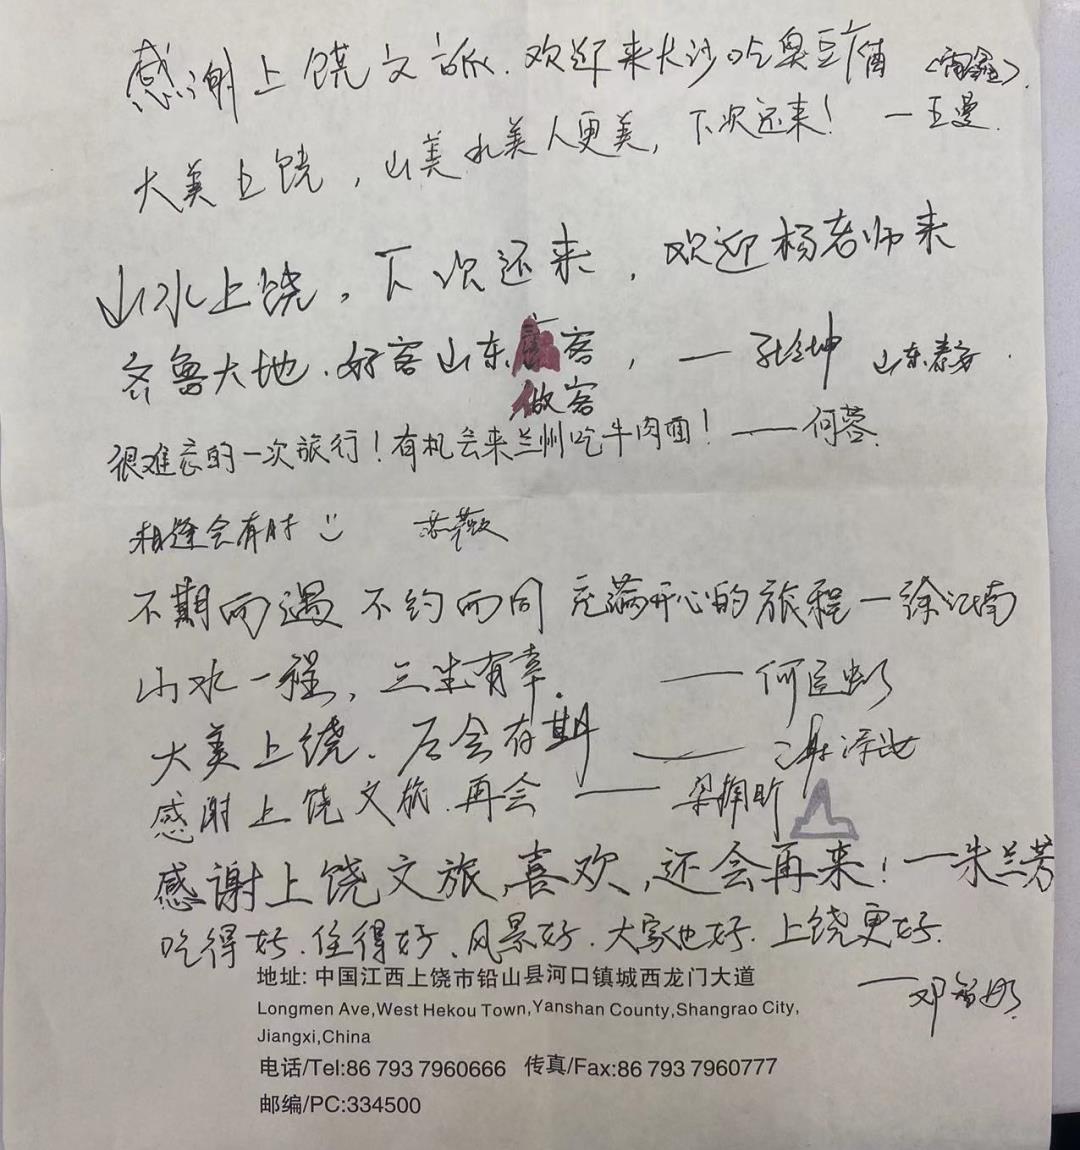 感谢上饶文旅.欢迎来长沙吃臭豆腐
大美上饶,山美水美人更美,下次还来! 一王曼.
山水上饶,下次还来,欢迎杨老师来
齐鲁大地.好客山东 客, 一 山东泰安.
做客
很难忘的一次旅行!有机会来兰州吃牛肉面! ——何蓉.
相逢会有时
不期而遇 不约而同 充满开心的旅程一徐江南
山水一程,三生有幸. ——何
大美上饶.后会有期 ——
感谢上饶文旅.再会 ——梁
感谢上饶文旅,喜欢,还会再来!一朱兰芳
吃得好.住得好、风景好.大家也好.上饶更好.
一邓
地址:中国江西上饶市铅山县河口镇城西龙门大道
Longmen Ave,West Hekou Town,Yanshan County,Shangrao City,
Jiangxi,China
电话/Tel:86 793 7960666 传真/Fax:86 793 7960777
邮编/PC:334500